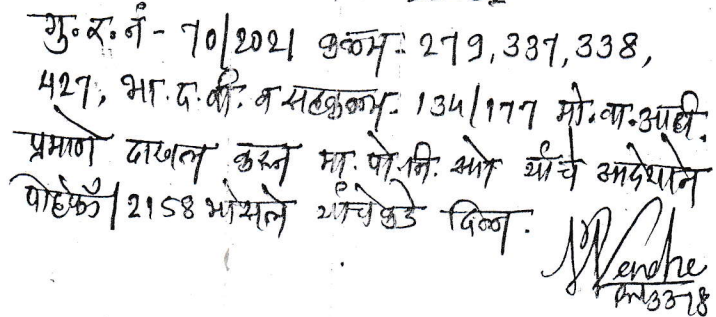 गु.र.नं - 70/2021 कलम. 279,337,338,
427, भा.द.वी. व सहकलम. 134/177 मो.वा.
प्रमाणे दाखल करुन मा. पो.नि. सो यांचे आदेशाने
पोहेकाँ/2158 भोसले यांचेकडे दिला.